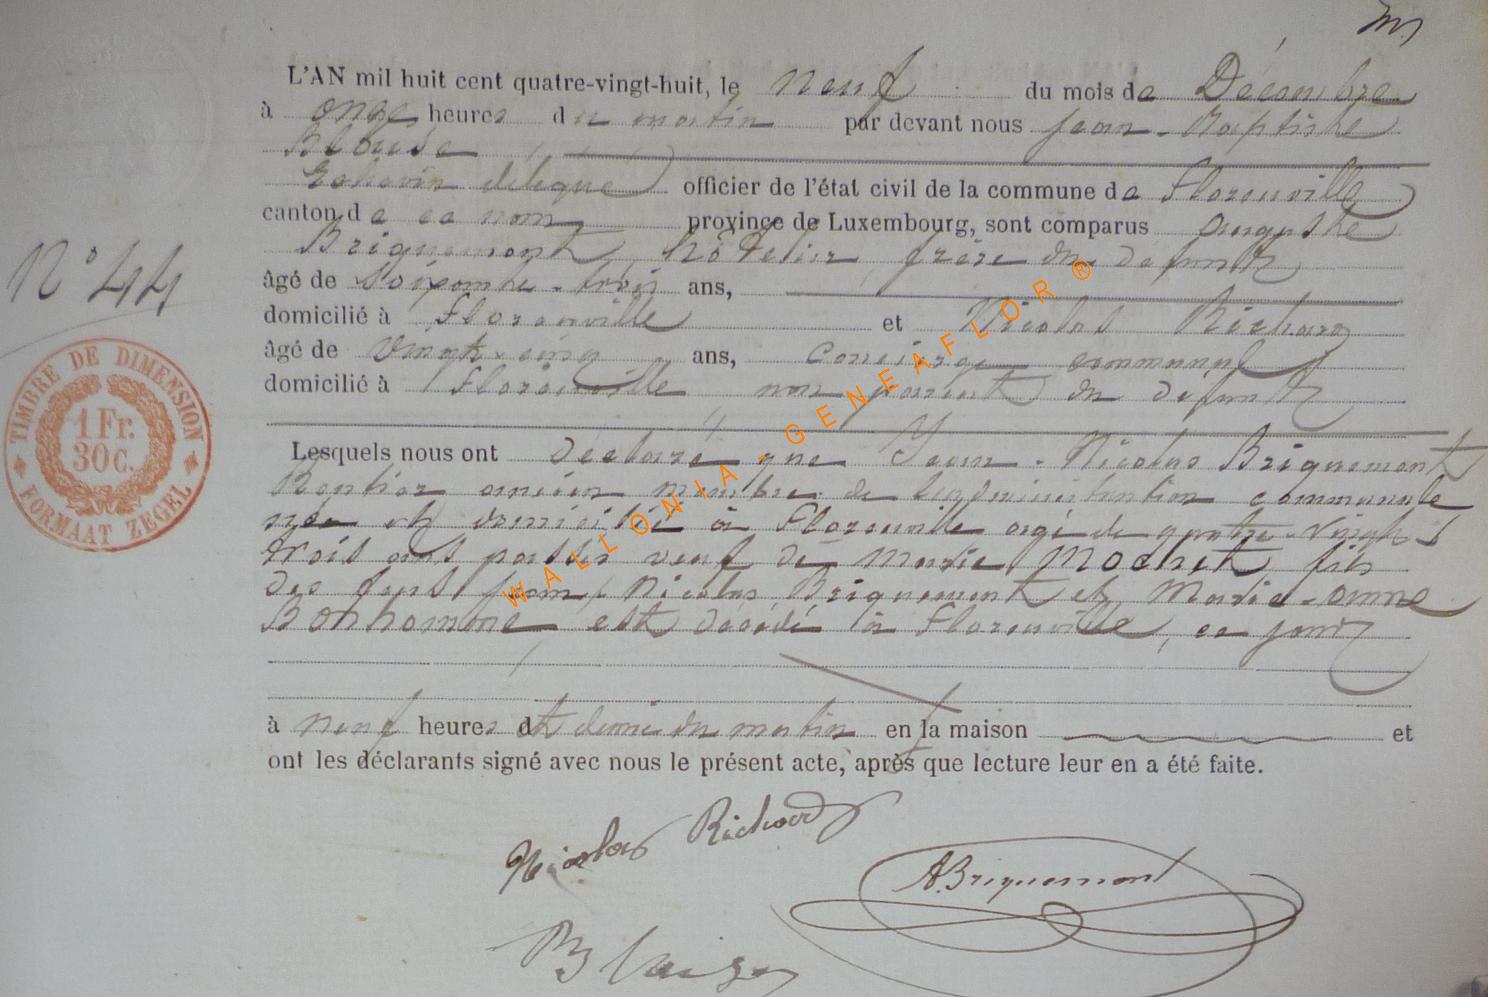 L'AN mil huit cent quatre-vingt-huit, le neuf du mois de Décembre
à onze heures du matin par devant nous Jean-Baptiste
Blaise
Echevin délégué officier de l'état civil de la commune de Florenville
canton de ce nom province de Luxembourg, sont comparus Auguste
Briquemont, hôtelier, frère du défunt
âgé de soixante-trois ans,
domicilié à Florenville et Nicolas Richard
âgé de vingt-cinq ans, concierge communal
domicilié à Florenville non parent du défunt
Lesquels nous ont déclaré que Jean-Nicolas Briquemont
Rentier ancien membre de l'administration communale
né et domicilié à Florenville âgé de quatre-vingt
trois ans passés veuf de Marie Mochet fils
des feus Jean-Nicolas Briquemont et Marie-Anne
Bonhomme est décédé à Florenville, ce jour
à neuf heures et demie du matin en la maison et
ont les déclarants signé avec nous le présent acte, après que lecture leur en a été faite.
Nicolas Richard
A. Briquemont
Blaise
N° 44
TIMBRE DE DIMENSION
1 Fr.
30 C.
FORMAAT ZEGEL
WALLONIA - GENEAFLOR ®